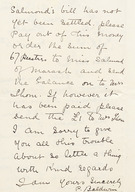 Salmond's bill has not
yet been settled please
Pay out of this money
order the sum of
to Miss Salmond
of Macrah and send
the balance on to Mr
Thom. If however it
has been paid please
send the £1 to Mr Thom
I am sorry to give
you all this trouble
about so little a thing
with Kind regards
I am yours Sincerely
Baldwin